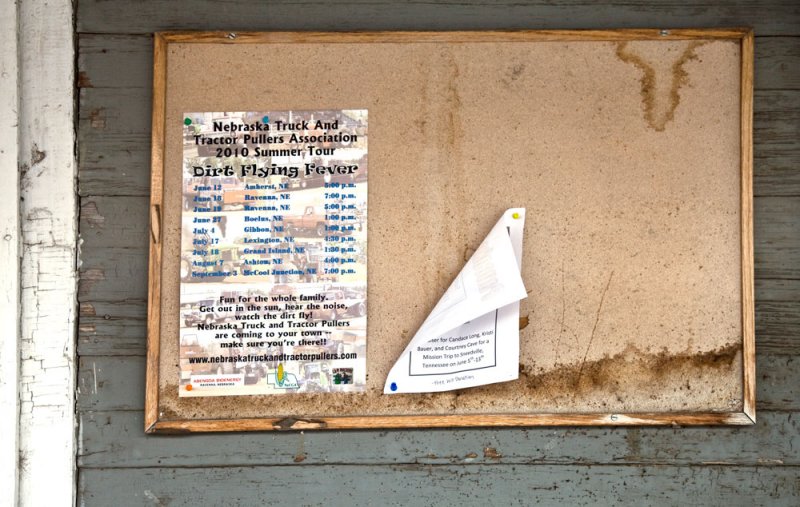 Nebraska Truck And
Tractor Pullers Association
2010 Summer Tour
Dirt Flying Fever
June 12 Amherst, NE 5:00 p.m.
June 18 Ravenna, NE 7:00 p.m.
June 19 Ravenna, NE 5:00 p.m.
June 27 Boelus, NE 1:00 p.m.
July 4 Gibbon, NE 1:00 p.m.
July 17 Lexington, NE 4:30 p.m.
July 18 Grand Island, NE 1:30 p.m.
August 7 Ashton, NE 4:00 p.m.
September 3 McCool Junction, NE 7:00 p.m.
Fun for the whole family.
Get out in the sun, hear the noise,
watch the dirt fly!
Nebraska Truck and Tractor Pullers
are coming to your town --
make sure you're there!!
www.nebraskatruckandtractorpullers.com
ABENGOA BIOENERGY
RAVENNA, NEBRASKA
for Candace Long, Kristi
Bauer, and Courtney Cave for a
Mission Trip to
Tennessee on June